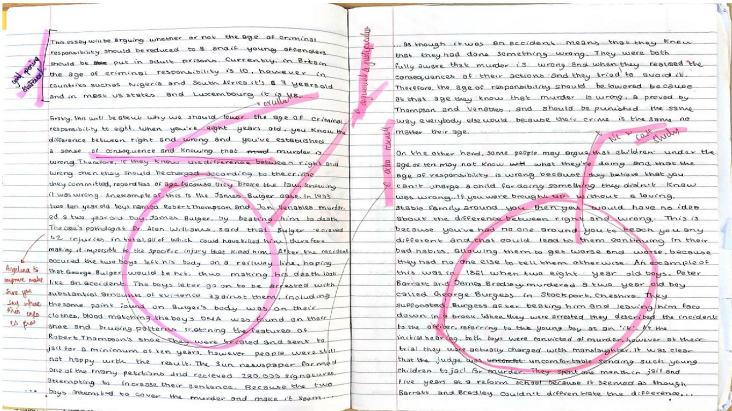 This essay will be arguing whether or not the age of criminal
responsibility should be reduced to 8 and if young offenders
should be put in adult prisons. Currently, in Britain
the age of criminal responsibility is 10, however in
countries such as Nigeria and South Africa it's 7 years old
and in most US states and Luxembourg it is
Firstly, this will be about why we should lower the age of criminal
responsibility to eight. When you're eight years old, you know the
difference between right and wrong and you've established
a sense of consequences and knowing that murder is
wrong. Therefore, if they know the difference between right and
wrong then they should be charged according to the crime
they committed, regardless of age because they broke the law, knowing
it was wrong. An example of this is the James Bulger case. In 1993
two ten year old boys named Robert Thompson and Jon Venables murder-
ed a two year old boy James Bulger, by beating him to death.
The case's pathologist Dr. Alan Williams, said that Bulger recieved
42 injuries in total, all of which could have killed him, therefore
making it impossible to the specific injury that killed him. After the incident
occured the two boys left his body on a railway line, hoping
that George Bulger would be hit, thus making his death look
like an accident. The boys later go on to be arrested with
substantial amounts of evidence against them, including
the same paint found on Bulger's body was on their
clothes, blood matching the boy's DNA was found on their
shoe and bruising patterns matching the features of
Robert Thompson's shoe. They were located and sent to
jail for a minimum of ten years, however people were still
not happy with the result. The Sun newspaper formed
one of the many petitions and recieved 280,000 signatures
attempting to increase their sentence. Because the two
boys attempted to cover the murder and make it seem...
...as though it was an accident means that they knew
that they had done something wrong. They were both
fully aware that murder is wrong and when they realised the
consequences of their actions and they tried to avoid it.
Therefore, the age of responsibility should be lowered because
at that age they know that murder is wrong, a proved by
Thompson and Venables, and should be punished the same
way everybody else would because their crime is the same no
matter their age.
On the other hand, some people may argue that children under the
age of ten may not know what they're doing and that the
age of responsibility is wrong because they believe that you
can't charge a child for doing something they didn't know
was wrong. If you were brought up without a loving,
stable family around you then you would have no idea
about the difference between right and wrong. This is
because you've had no one around you to teach you any
different and that could lead to them continuing in their
bad habits, allowing them to get worse and worse because
they had no one else to tell them otherwise. An example of
this was in 1861 when two eight year old boys, Peter
Barratt and James Bradley murdered a two year old boy
called George Burgess in Stockport, Cheshire. They
Burgess after beating him and leaving him face
down in a brook. When they were arrested they described the incident
to the officer, referring to the young boy as an 'it'. At the
initial both boys were convicted of murder, however at their
trial they were actually charged with manslaughter. It was clear
that the judge was uncomfortable sending such young
children to jail for murder. They spent one month in jail and
five years at a reform school because it seemed as though
Barratt and Bradley couldn't differentiate the difference...